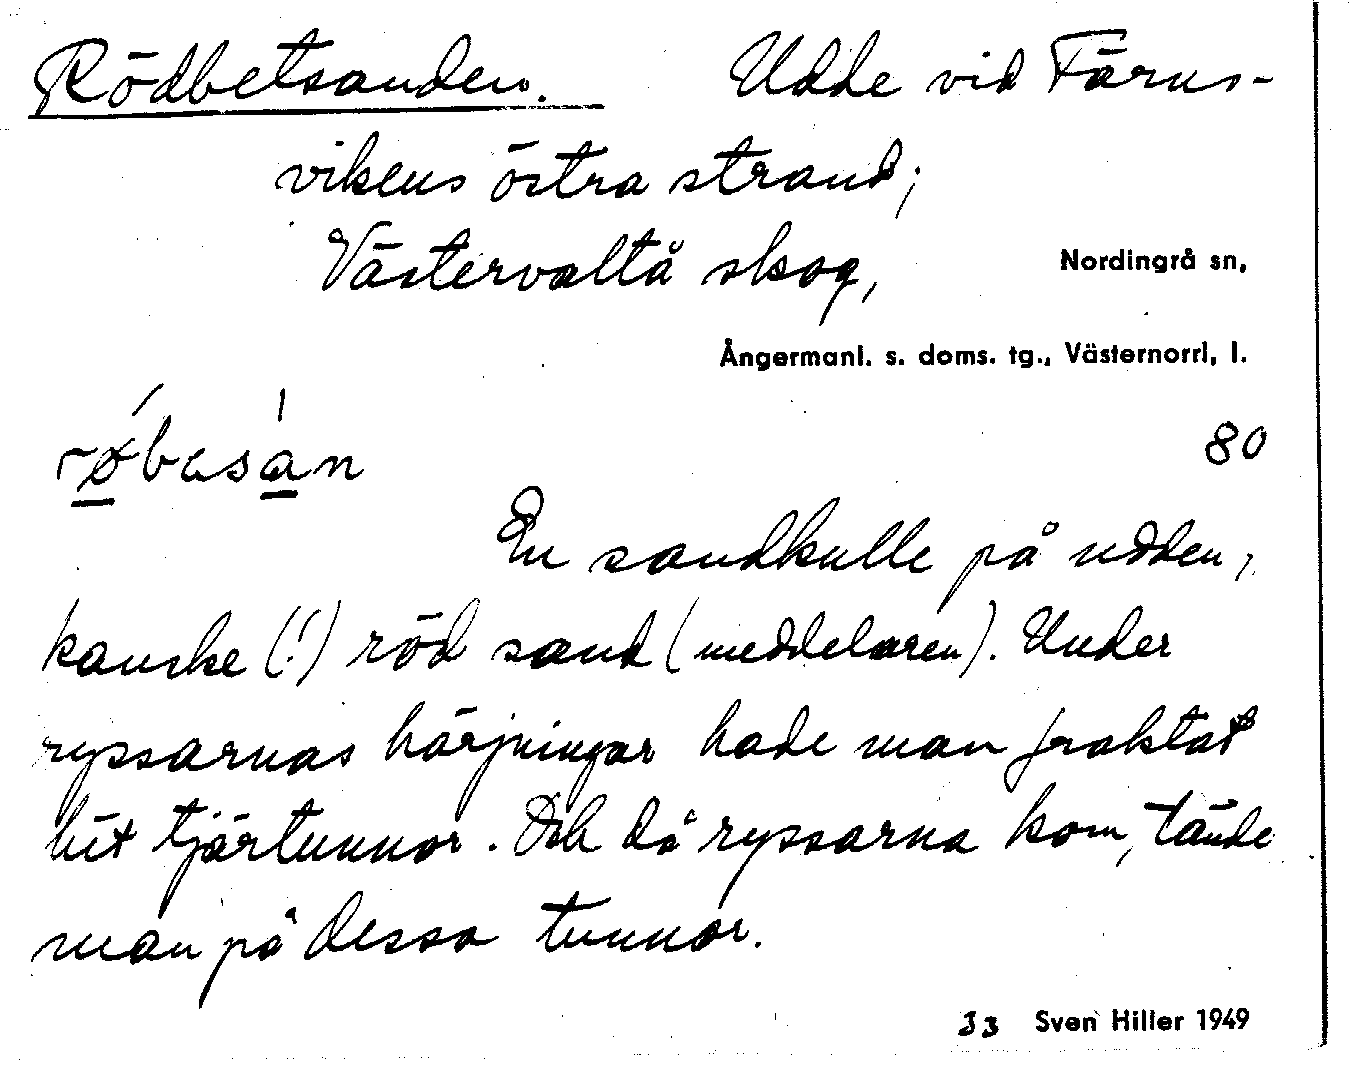 Rödbetsanden. Udde vid Färns-
vikens östra strand;
Västervaltå skog,
Nordingrå sn,
Ångermanl. s. doms. tg., Västernorrl. l.
røbasan
80
En sandkulle på udden,
kanske (!) röd sand (meddelaren). Under
ryssarnas härjningar hade man fraktat
hit tjärtunnor. Och då ryssarna kom, tände
man på dessa tunnor.
33 Sven Hiller 1949